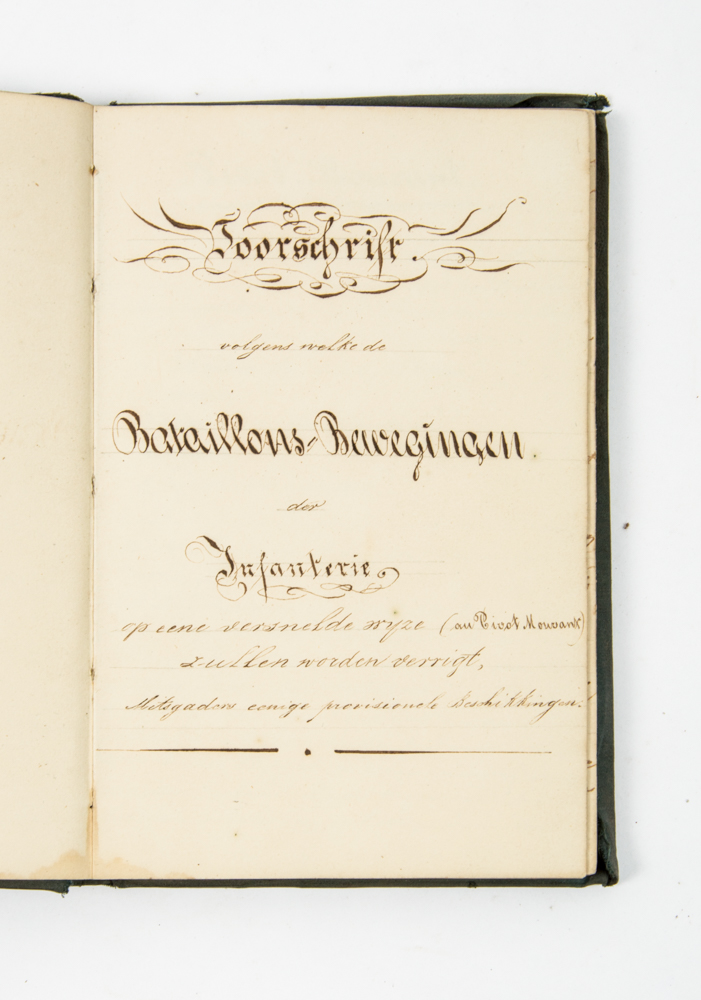 Voorschrift.
volgens welke de
Bataillons-Bewegingen.
der
Infanterie
op eene versnelde wyze (au Pivot Mouvant)
zullen worden verrigt,
Mitsgaders eenige provisionele Beschikkingen.